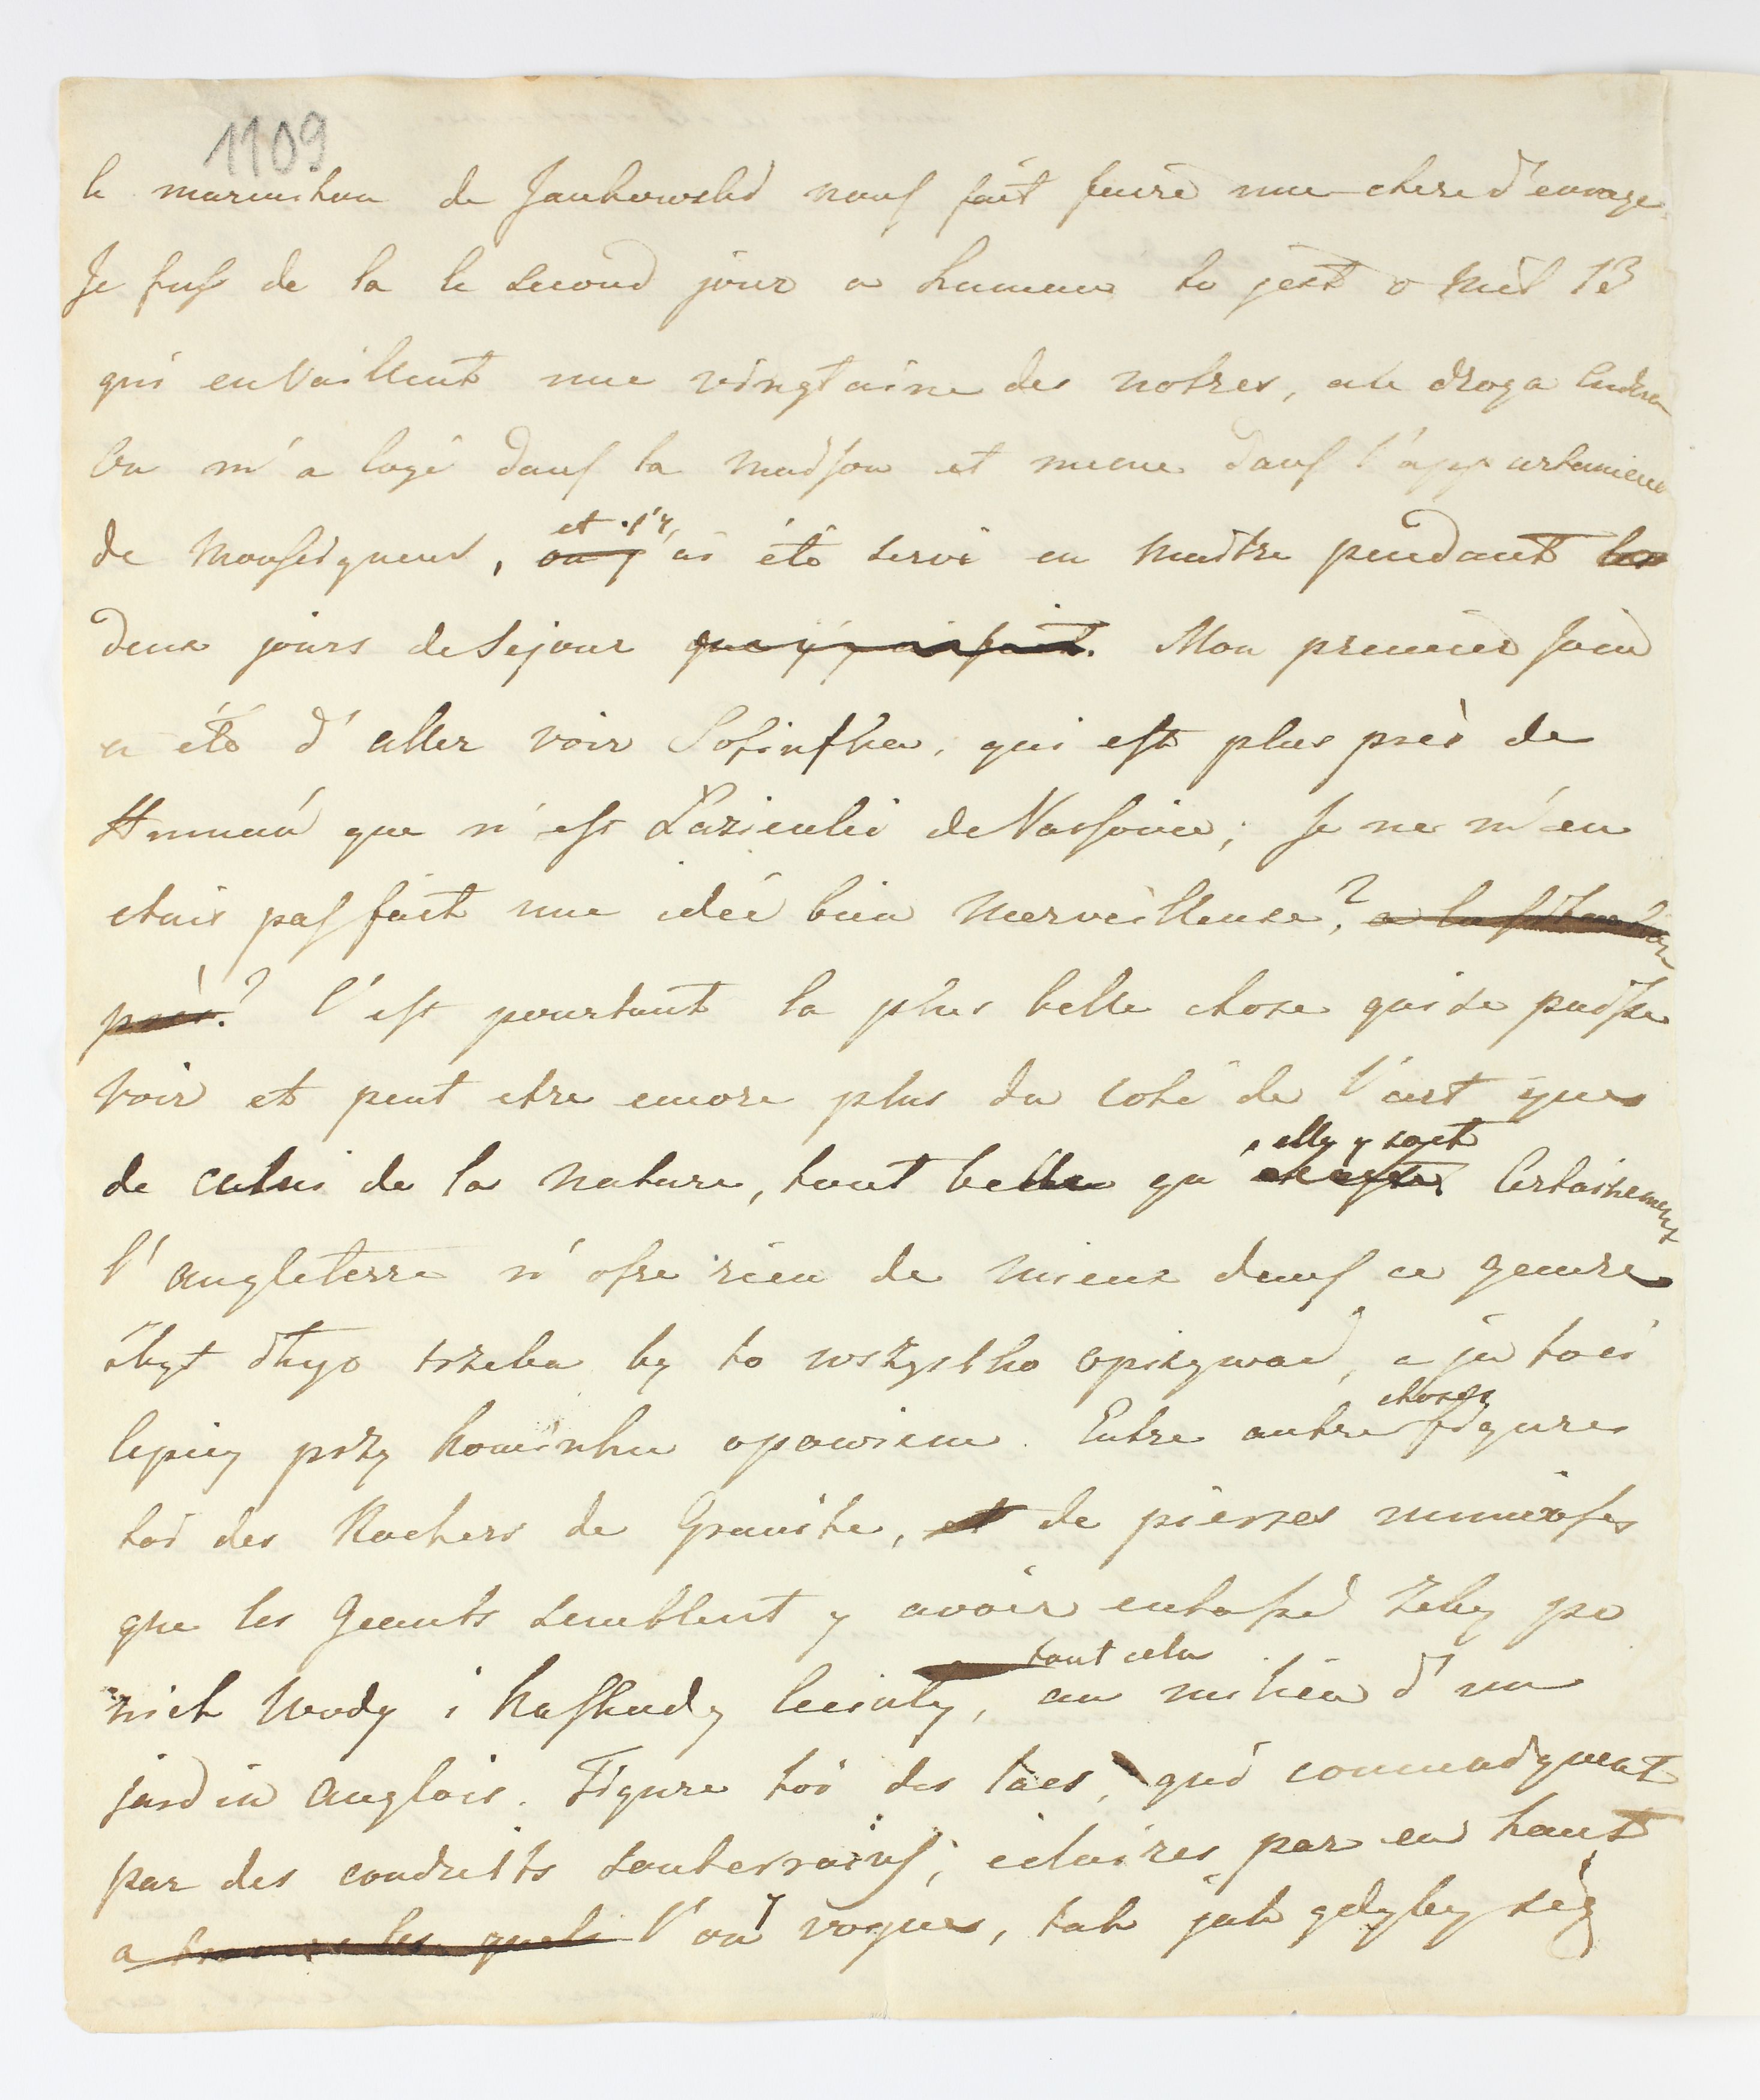 1109
le marmiton de Jankowski nous fait faire une chere d'enragé.
Je fus de la le second jour a human to jest o mil 13
qui en vaillent une vingtaine des notres, ale droga cudna
On m'a logé dans la maison et meme dans l'appartamene
de Monseigneur, et j'y ai été servi en maitre pendant les
deux jours de sejour Mon premier soin
a été d'aller voir Sofiufka, qui est plus près de
Humań que n'est Łazienki de Varsovie; Je ne m'en
etais pas fait une idée bien merveilleuse, a la situation
près? C'est pourtant la plus belle chose qui se puisse
voir et peut etre encore plus du coté de l'art que
de celui de la nature, tout belle qu'elle y soit Certainement
l'angleterre n'ofre rien de mieux dans ce genre
zbyt długo trzeba by to wszystko opisywać, a ja toci
lepiey przy kominku opowiem. Entre autre choses figures
toi des Rochers de Granite, et de pierres immenses
que les Geants semblent y avoir entassé żeby po
nich wody i kaskady leciały, tout cela au milieu d'un
jardin anglois. Figure toi des lacs, qui communiquent
par des conduits souterrains, eclairés par en haut
a travers les quels l'on y vogues, tak jak gdyby się